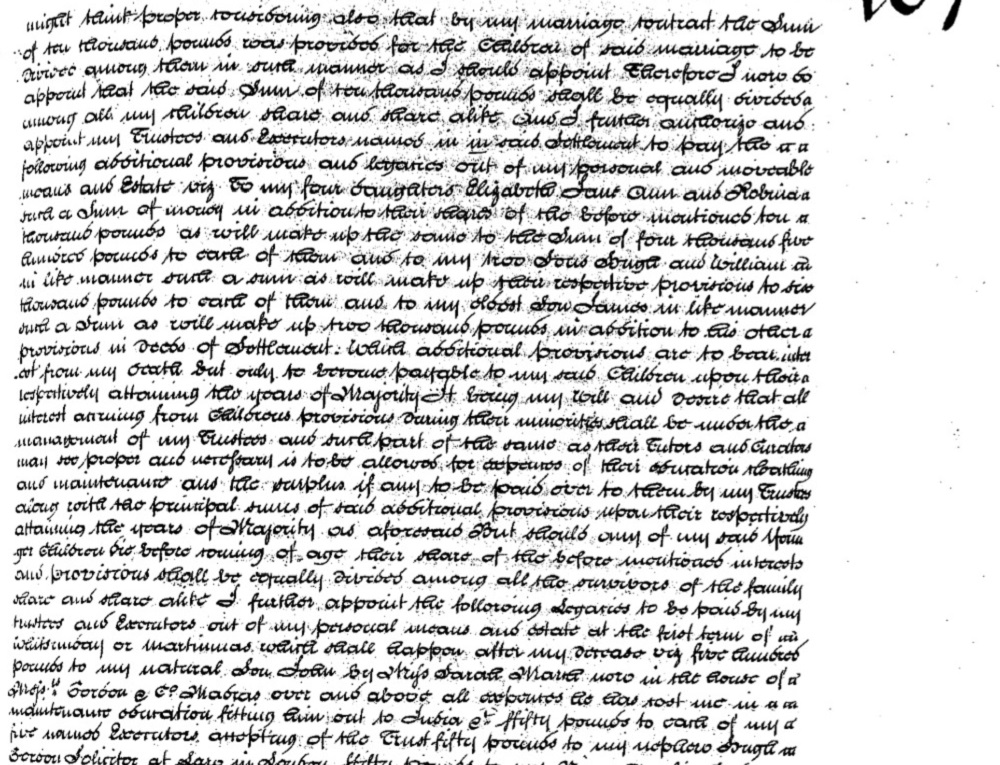 might think proper considering also that by my marriage contract the Sum
of ten thousand pounds was provided for the Children of said marriage to be
divided among them in such manner as I should appoint Therefore I now do
appoint that the said Sum of ten thousand pounds shall be equally divided
among all my children share and share alike And I further authorize and
appoint my Trustees and Executors named in in said Settlement to pay the
following additional provisions and legacies out of my personal and moveable
means and Estate viz To my four daughters Elizabeth Jane Ann and Robina
such a Sum of money in addition to their shares of the before mentioned ten
thousand pounds as will make up the same to the Sum of four thousand five
hundred pounds to each of them and to my two Sons Hugh and William
in like manner such a sum as will make up their respective provisions to six
thousand pounds to each of them and to my eldest Son James in like manner
such a Sum as will make up two thousand pounds in addition to his other
provisions in Deeds of Settlement. Which additional provisions are to bear inter
est from my death but only to become payable to my said Children upon their
respectively attaining the years of Majority It being my will and desire that all
interest arising from Childrens provisions during their minorities shall be under the
management of my Trustees and such part of the same as their Tutors and Curators
may see proper and necessary is to be allowed for expences of their education cloathing
and maintenance and the surplus if any to be paid over to them by my Trustees
along with the principal sums of said additional provisions upon their respectively
attaining the years of Majority as aforesaid But should any of my said Youn
ger Children die before coming of age their share of the before mentioned interests
and provisions shall be equally divided among all the survivors of the family
share and share alike I further appoint the following Legacies to be paid by my
trustees and Executors out of my personal means and estate at the first term of
whitsunday or martinmas which shall happen after my decease viz five hundred
pounds to my natural Son John by Miss Sarah now in the house of
Mess.rs Gordon & Co. Madras over and above all expences he has cost me in
maintenance education fitting him out to India &c ffifty pounds to each of my
five named Executors accepting of the Trust fifty pounds to my nephew Hugh
Gordon Solicitor at Law in London ffifty pounds to